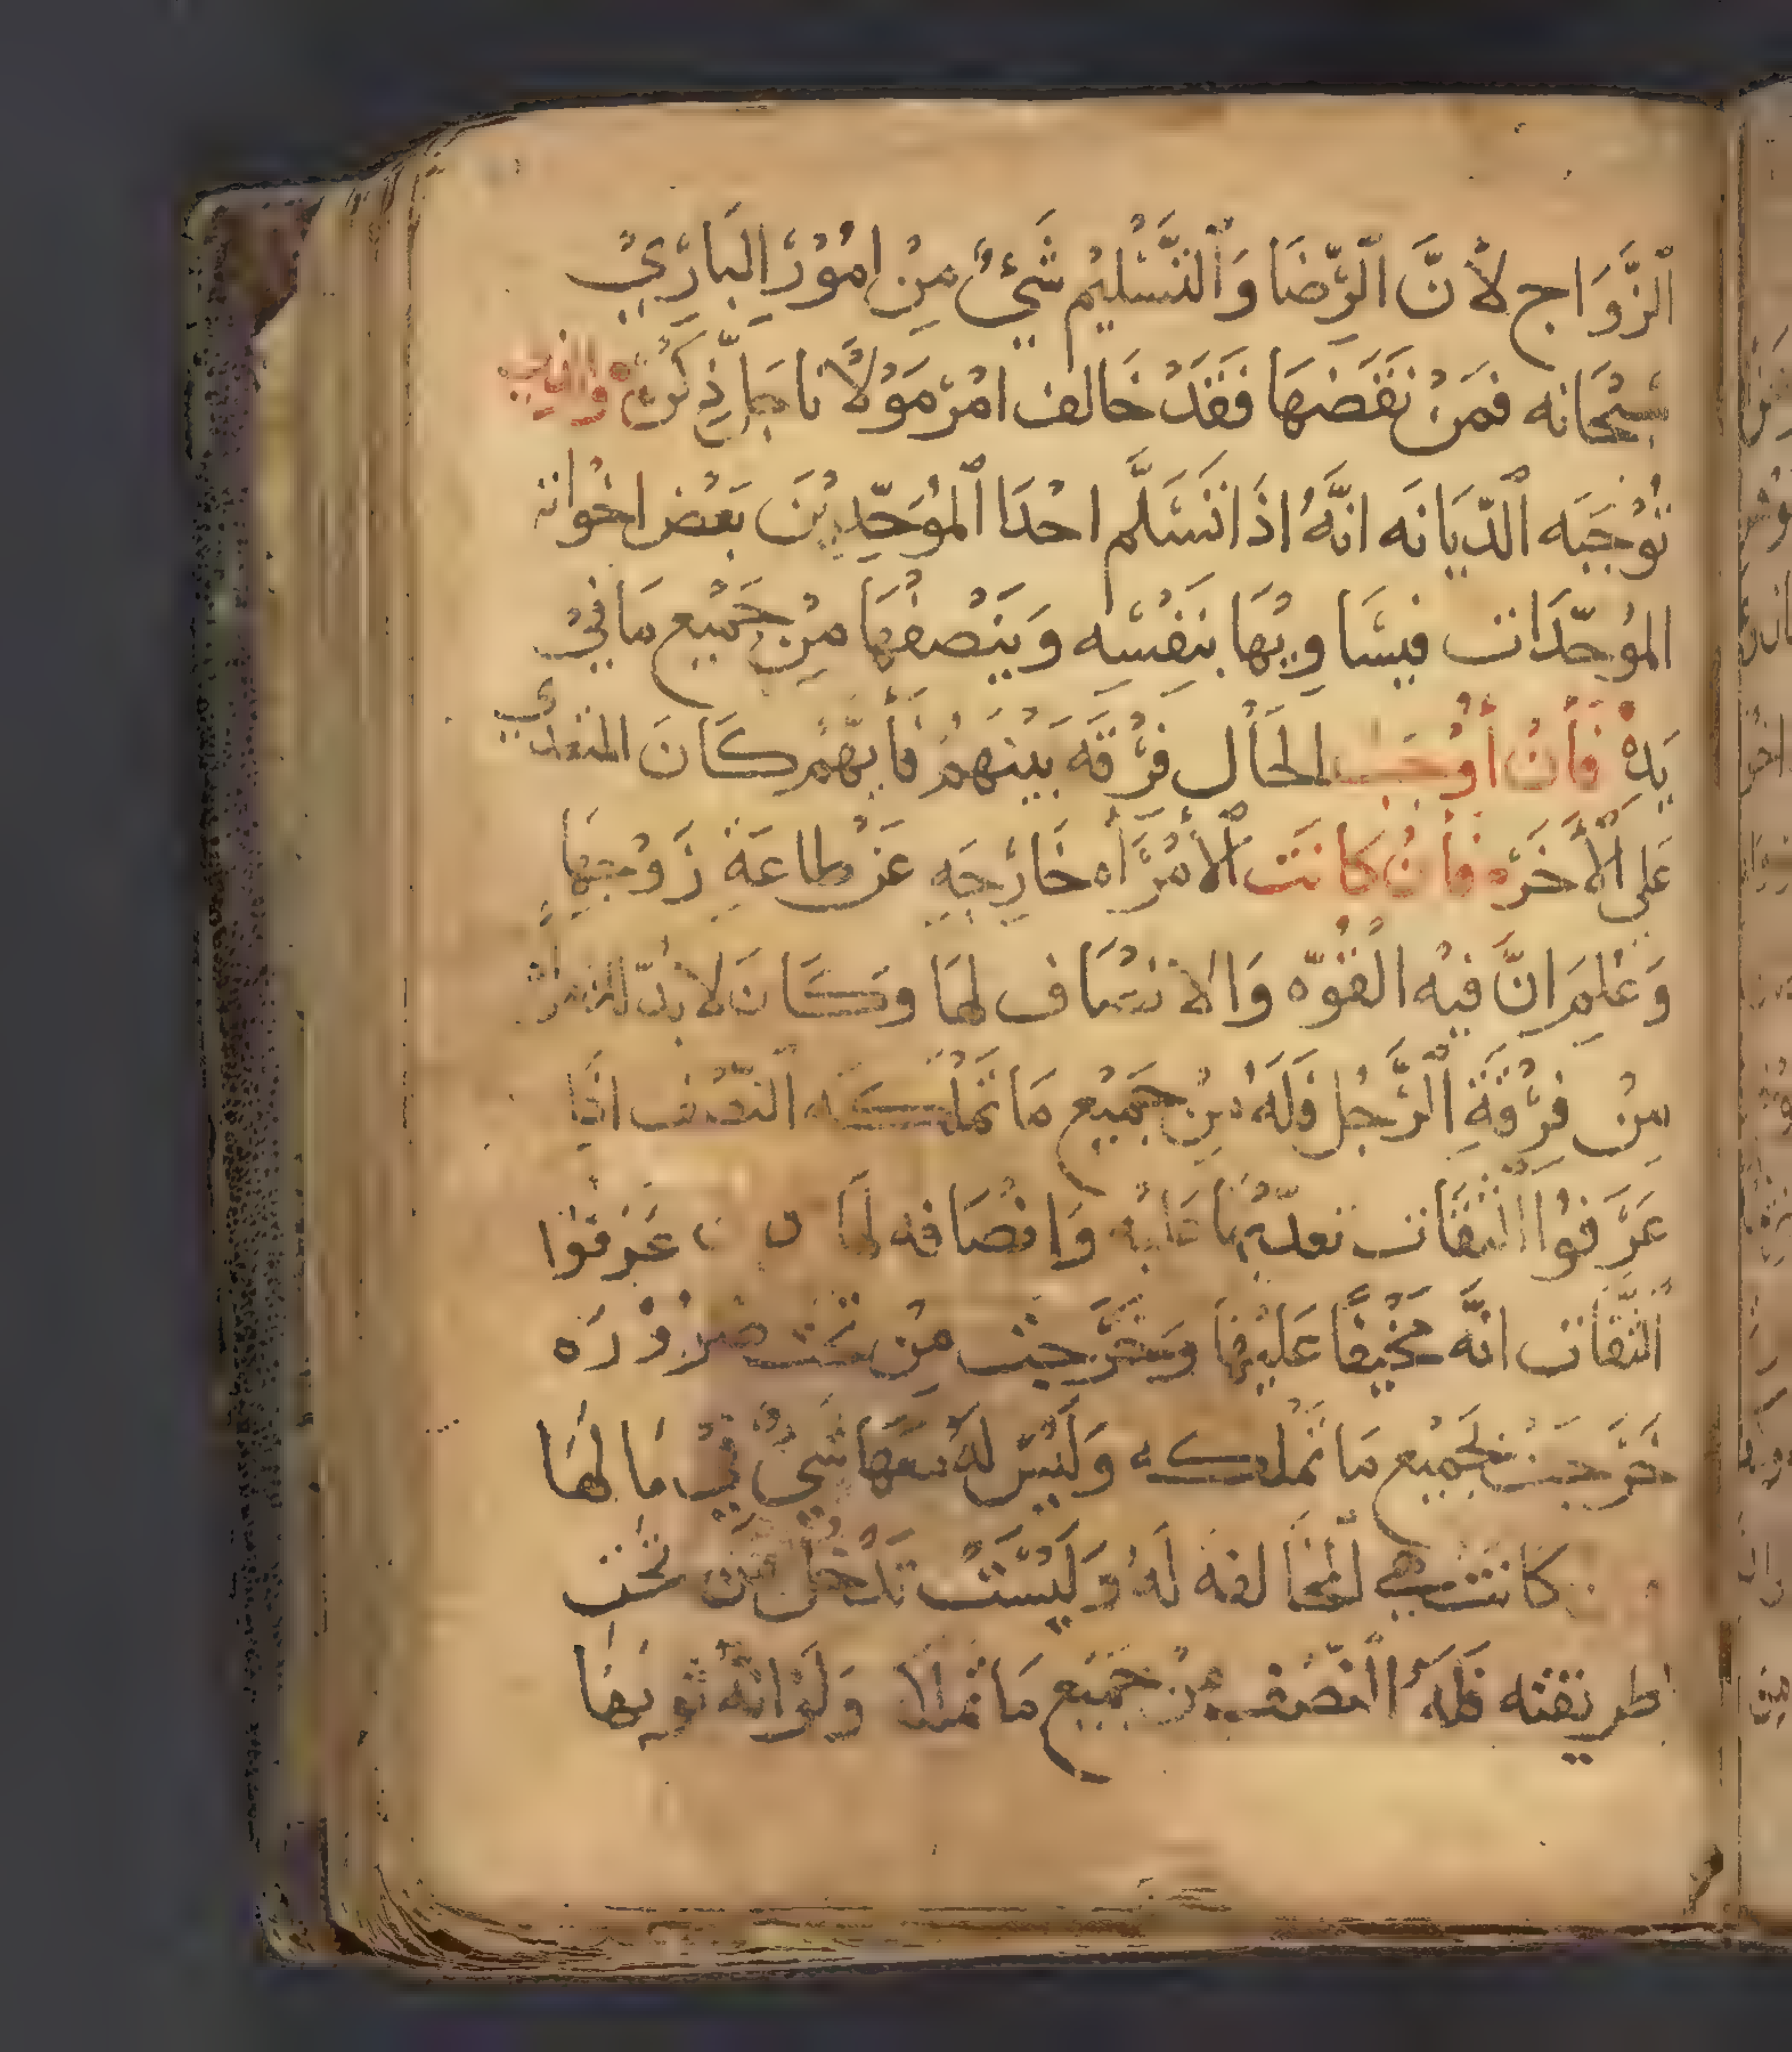 ٱلزَّوَاج لأنَّ ٱلرِّضَا وَٱلتَّسْلِيْم شَيْءٌ مِنْ امُوْرِ البَارِيْ
سُبْحَانه فَمَنْ نَقَضَهَا فَقَدْ خَالف امْرَ مَوْلَانَا جَل ذِكْرُهُ والذي
تُوْجِبَه ٱلدّيَانَه انَّهُ اذَا تَسَلَّم احْدَا ٱلمُوَحِّدِيْنَ بَعْض اخْوَاته
المُوحِّدَات فَيسَاوِيْهَا بِنَفْسِه وَيَنْصفُهَا مِنْ جَمِيْع مَا فِيْ
يَدِهْ فَأنْ أوْجَبَ الحَأْل فِرْقَه بَيْنَهُمْ فَأيّهُمْ كَانَ المتعدي
عَلى ٱلْأخَرْ فَأنْ كانَتَ ٱلأمْرَأه خَارِجَهِ عَنْ طاعَةِ زَوْجِهَا
وَعُلِمَ انَّ فيْه القُوّه وَالانْصَاف لهَا وَكَانَ لا بُدّ
مِنْ فِرْقَةِ ٱلرَّجُل فَلَهُ مِنْ جَمِيْع مَا تَمْلكه ٱلنّصْف اذَا
عَرَفُوا الثقَات تعدّيْهَا عَليْه وَانْصَافه لهَا عَرَفُوا
ٱلثقَات انّه مُحَيْفًا عَليْهَا وَخَرَجَت مِن تحْت ضَرُوْرَه
خَرَجَتْ بجَمِيْع مَا تمْلكه وَلَيْسَ لهُ معَهَا شَيْءٌ فِيْ مَا لهَا
كانَت هي المخَالفه لَهُ وَلَيْسَتْ تَدْخُل مِن تحْت
طريقته فلَهُ ٱلنّصْف مِنْ جَمِيْع مَا تملك وَلَوْ انّه ثوبهَا